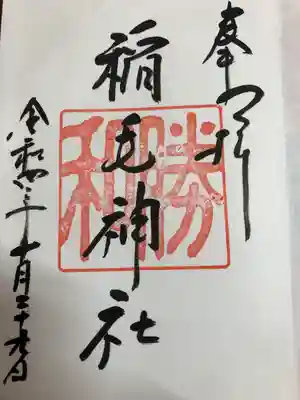 奉拝
稲毛神社
勝和
令和三年十月二十九日